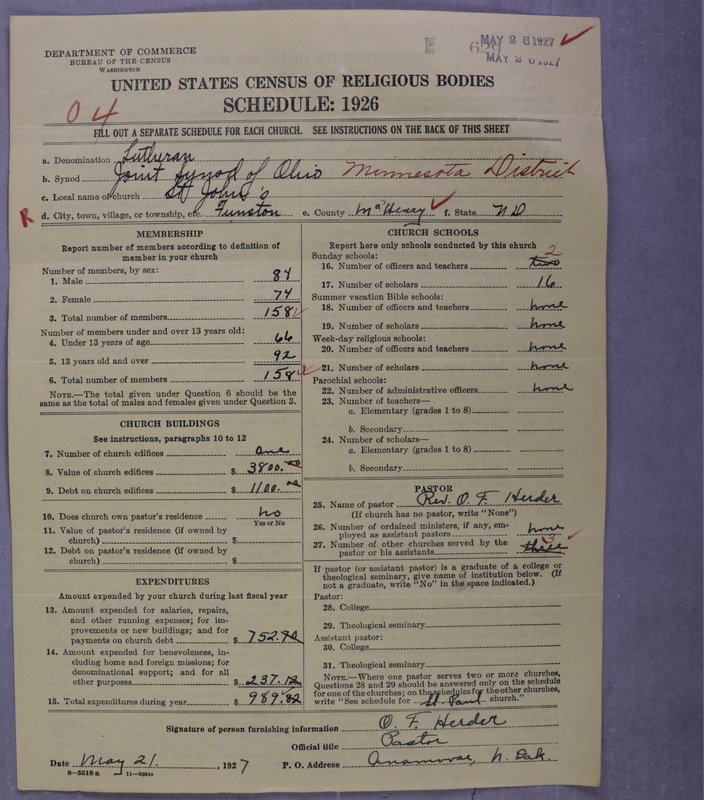 DEPARTMENT OF COMMERCE
BUREAU OF THE CENSUS
WASHINGTON
MAY 26 1927
629
MAY 26 1927
UNITED STATES CENSUS OF RELIGIOUS BODIES
SCHEDULE: 1926
04
FILL OUT A SEPARATE SCHEDULE FOR EACH CHURCH. SEE INSTRUCTIONS ON THE BACK OF THIS SHEET
a. Denomination Lutheran
b. Synod Joint Synod of Ohio Minnesota District
c. Local name of church St John's
R d. City, town, village, or township, etc. Funston e. County McHenry f. State ND
MEMBERSHIP
Report number of members according to definition of
member in your church
Number of members, by sex:
1. Male 84
2. Female 74
3. Total number of members 158
Number of members under and over 13 years old:
4. Under 13 years of age 66
5. 13 years old and over 92
6. Total number of members 158
NOTE.—The total given under Question 6 should be the
same as the total of males and females given under Question 3.
CHURCH BUILDINGS
See instructions, paragraphs 10 to 12
7. Number of church edifices One
8. Value of church edifices $ 3800.00
9. Debt on church edifices $ 1100.00
10. Does church own pastor's residence no
Yes or No
11. Value of pastor's residence (if owned by
church) $
12. Debt on pastor's residence (if owned by
church) $
EXPENDITURES
Amount expended by your church during last fiscal year
13. Amount expended for salaries, repairs,
and other running expenses; for im-
provements or new buildings; and for
payments on church debt $ 752.70
14. Amount expended for benevolences, in-
cluding home and foreign missions; for
denominational support; and for all
other purposes $ 237.12
15. Total expenditures during year $ 989.82
CHURCH SCHOOLS
Report here only schools conducted by this church
Sunday schools: 2
16. Number of officers and teachers two
17. Number of scholars 16
Summer vacation Bible schools:
18. Number of officers and teachers none
19. Number of scholars none
Week-day religious schools:
20. Number of officers and teachers none
21. Number of scholars none
Parochial schools:
22. Number of administrative officers none
23. Number of teachers—
a. Elementary (grades 1 to 8)
b. Secondary
24. Number of scholars—
a. Elementary (grades 1 to 8)
b. Secondary
PASTOR
25. Name of pastor Rev. O. F. Herder
(If church has no pastor, write "None")
26. Number of ordained ministers, if any, em-
ployed as assistant pastors none
27. Number of other churches served by the 3
pastor or his assistants three
If pastor (or assistant pastor) is a graduate of a college or
theological seminary, give name of institution below. (If
not a graduate, write "No" in the space indicated.)
Pastor:
28. College
29. Theological seminary
Assistant pastor:
30. College
31. Theological seminary
NOTE.—Where one pastor serves two or more churches,
Questions 28 and 29 should be answered only on the schedule
for one of the churches; on the schedules for the other churches,
write "See schedule for St. Paul church."
Signature of person furnishing information O. F. Herder
Official title Pastor
Date May 21, 1927 P. O. Address Anamoose, N. Dak.
8—5518 a 11—9684